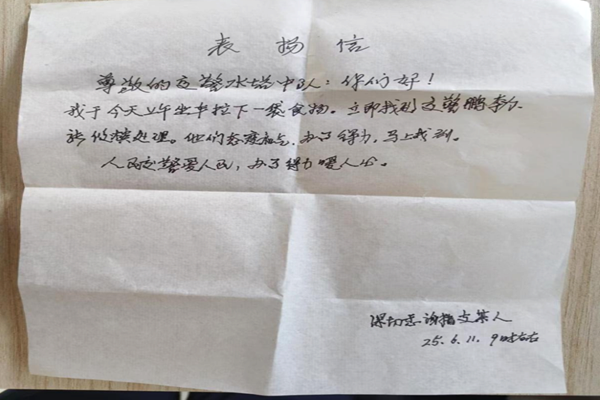 表扬信
尊敬的交警水塔中队：你们好！
我于今天上午坐车拉下一袋食物。立即找到交警鹏李
处理。他们态度，办了得力，马上找到。
人民交警爱人民，办了得力暖人心。
深切感谢
25.6.11.9时左右